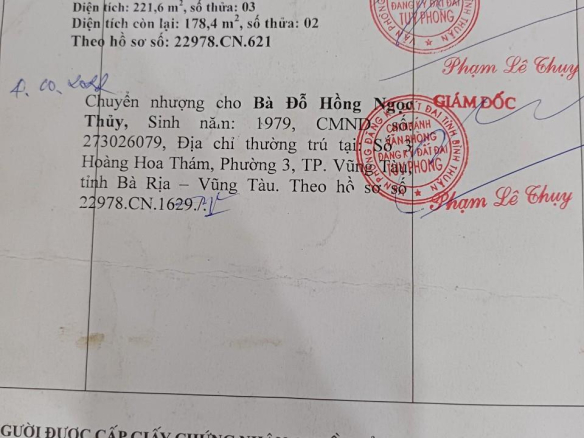 Diện tích: 221,6 m², số thửa: 03
Diện tích còn lại: 178,4 m², số thửa: 02
Theo hồ sơ số: 22978.CN.621
Phạm Lê Thụy
Chuyển nhượng cho Bà Đỗ Hồng Ngọc
GIÁM ĐỐC
Thủy, Sinh năm: 1979, CMND số:
273026079, Địa chỉ thường trú tại: Số 3
Hoàng Hoa Thám, Phường 3, TP. Vũng Tàu,
tỉnh Bà Rịa – Vũng Tàu. Theo hồ sơ số
22978.CN.1629./.
Phạm Lê Thụy
VĂN PHÒNG ĐĂNG KÝ ĐẤT ĐAI TỈNH BÌNH THUẬN
CHI NHÁNH
VĂN PHÒNG
ĐĂNG KÝ ĐẤT ĐAI
TUY PHONG
ĐĂNG KÝ ĐẤT ĐAI
TUY PHONG